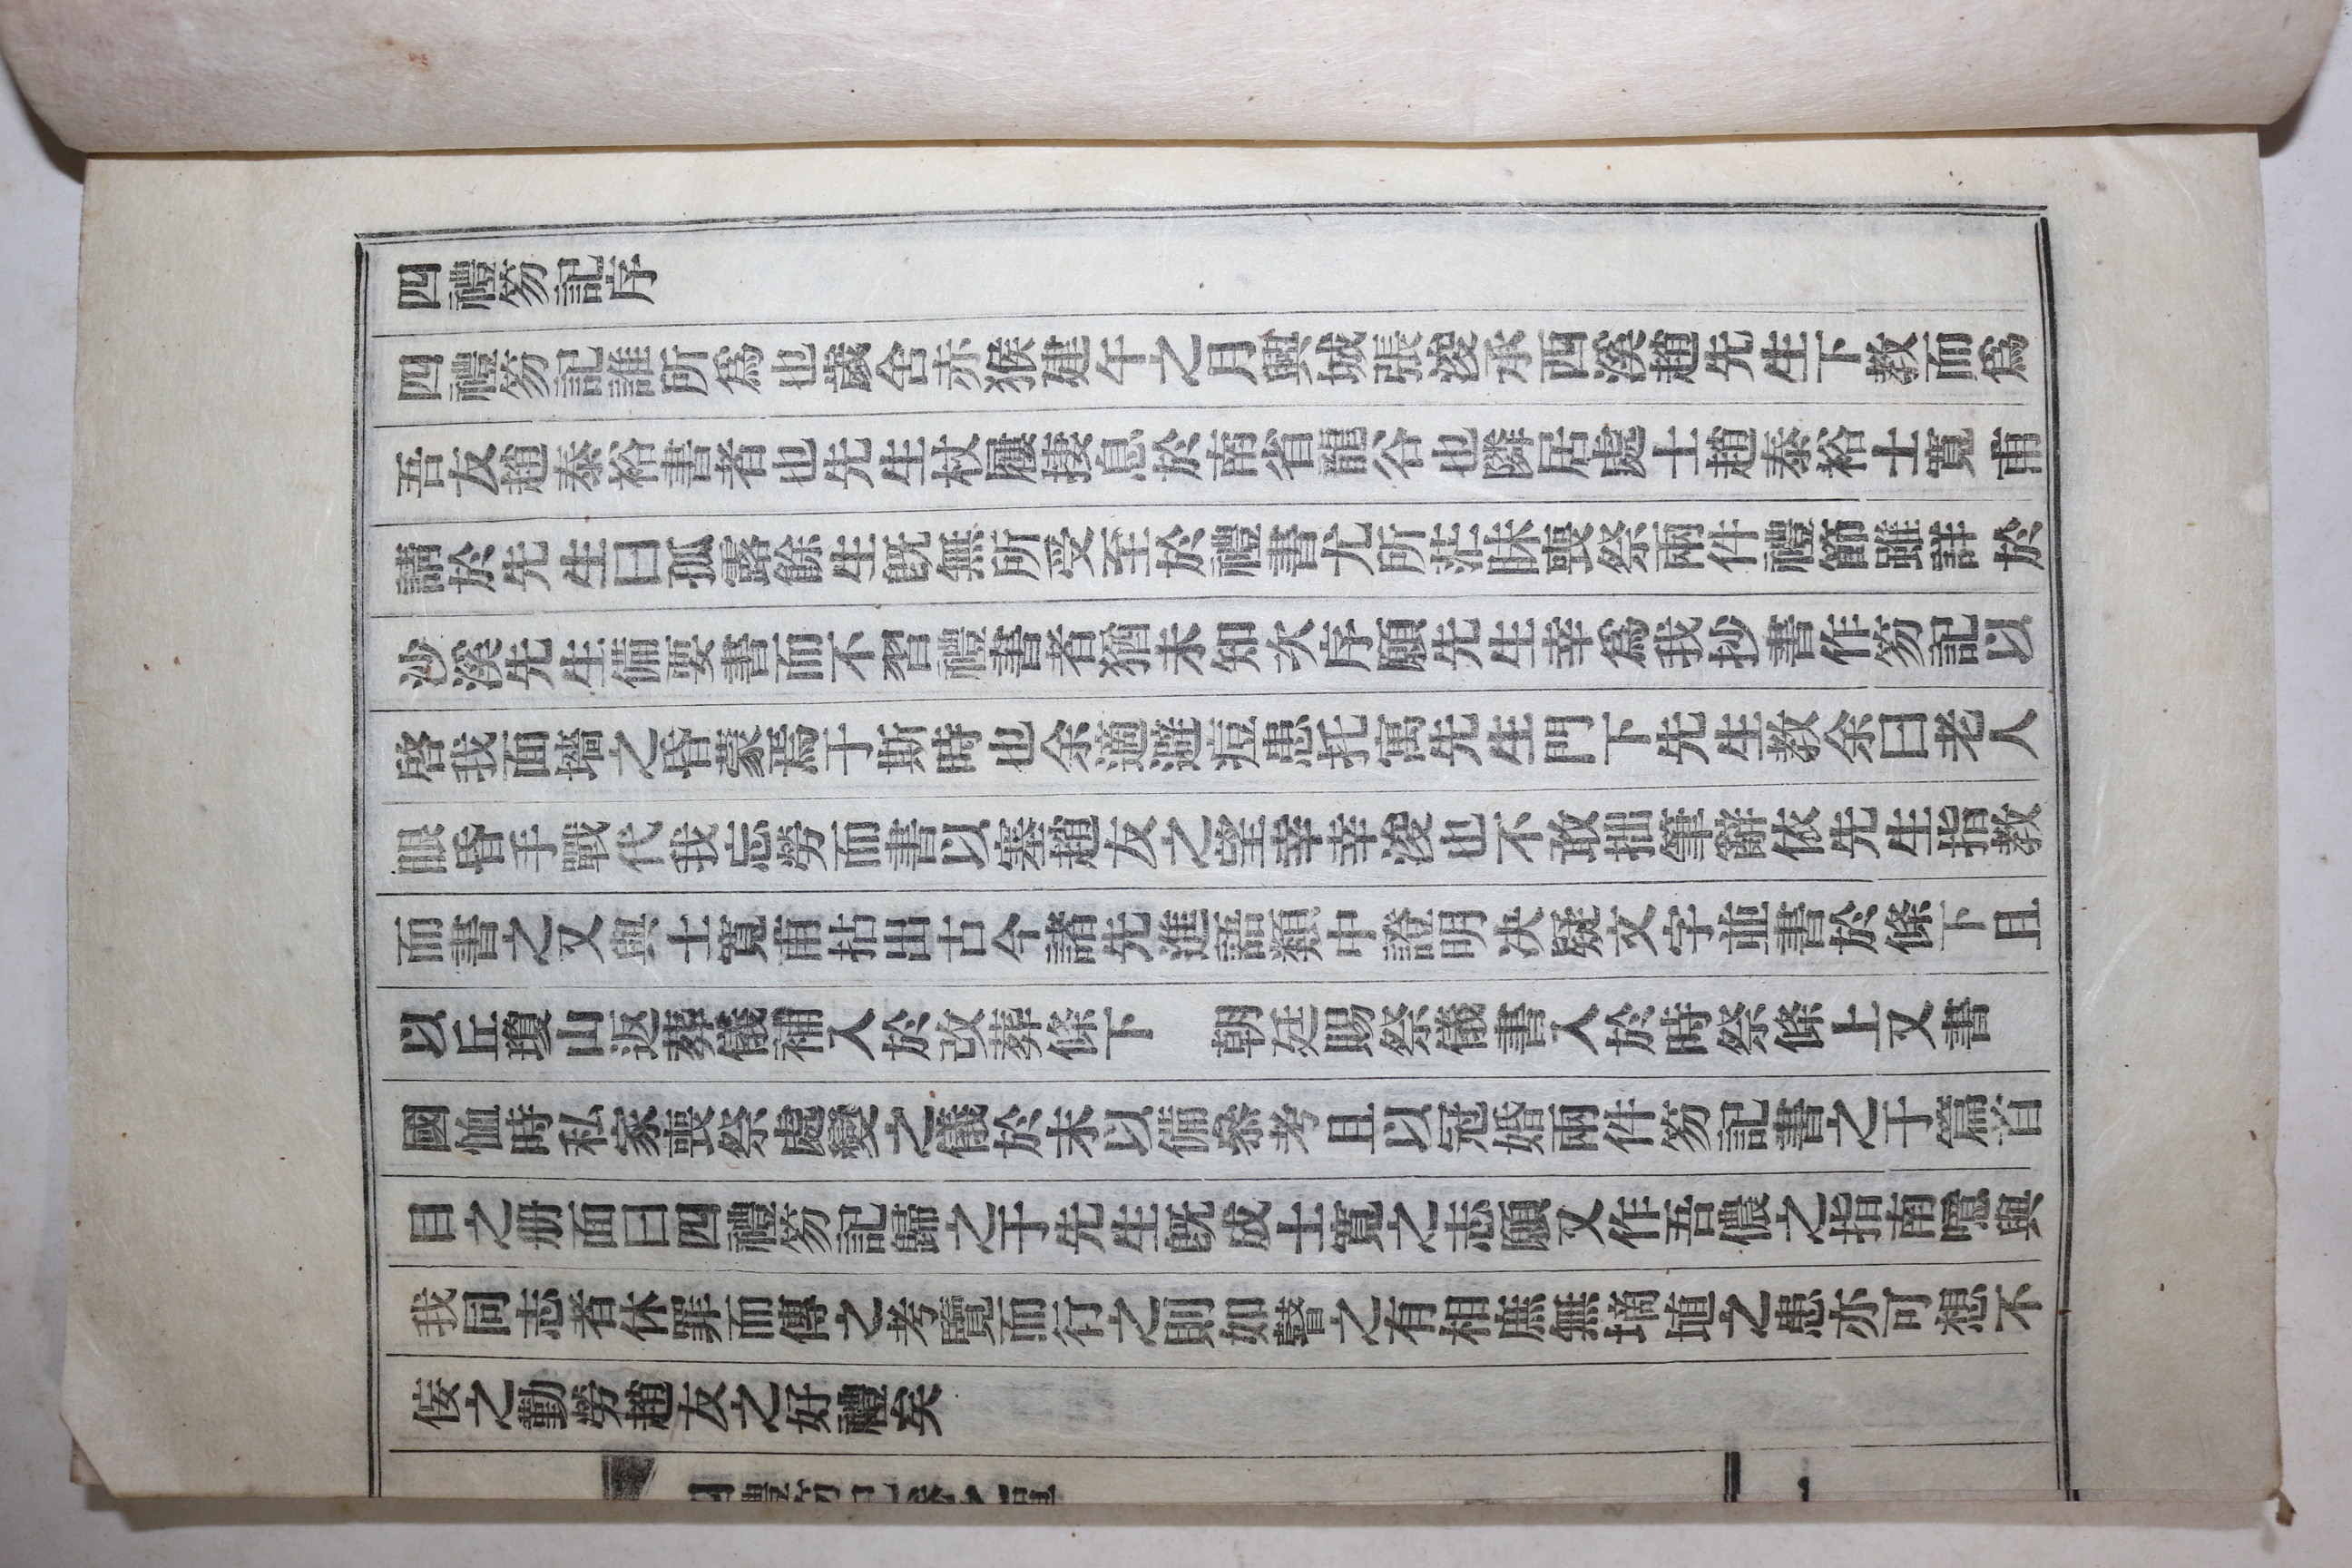 四禮笏記序
四禮笏記誰所爲也歲舍赤猴建午之月興城張浚承西溪趙先生下教而爲
吾友趙泰裕書者也先生杖屨捿息於南省龍谷也隣居處士趙泰裕士寬甫
請於先生曰孤露餘生旣無所受至於禮書尤所茫昧喪祭兩件禮節雖詳於
沙溪先生備要書而不習禮書者猶未知次序願先生幸爲我抄書作笏記以
啓我面墻之昏蒙焉于斯時也余適避痘患托寓先生門下先生教余曰老人
眼昏手戰代我忘勞而書以塞趙友之望幸幸浚也不敢拙筆辭依先生指教
而書之又與士寬甫拈出古今諸先進語類中證明决疑文字並書於條下且
以丘瓊山返葬儀補入於改葬條下　朝廷賜祭儀書入於時祭條上又書
國恤時私家喪祭處變之儀於末以備叅考且以冠婚兩件笏記書之于篇首
目之册面曰四禮笏記歸之于先生旣成士寬之志願又作吾儂之指南噫與
我同志者休罪而傳之考覽而行之則如瞽之有相庶無擿埴之患亦可想不
侫之勤勞趙友之好禮矣
四禮笏記卷之單
一